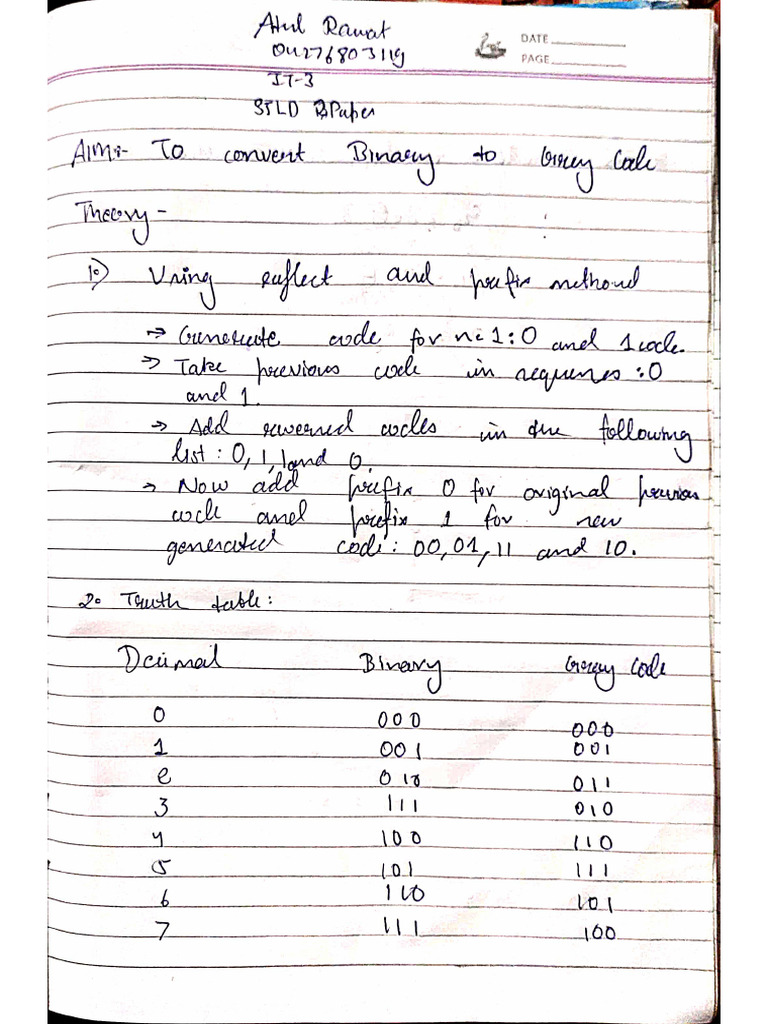 Atul Rawat
04276803119
IT-3
STLD Paper
DATE
PAGE
AIM:- To convert Binary to Grey Code
Theory -
1.) Using reflect and prefix method
→ Generate code for n=1: 0 and 1 code.
→ Take previous code in sequence : 0
and 1.
→ Add reversed codes in the following
list : 0, 1, 1 and 0.
→ Now add prefix 0 for original previous
code and prefix 1 for new
generated code: 00, 01, 11 and 10.
2. Truth table:
Decimal Binary Grey Code
0 000 000
1 001 001
2 010 011
3 111 010
4 100 110
5 101 111
6 110 101
7 111 100